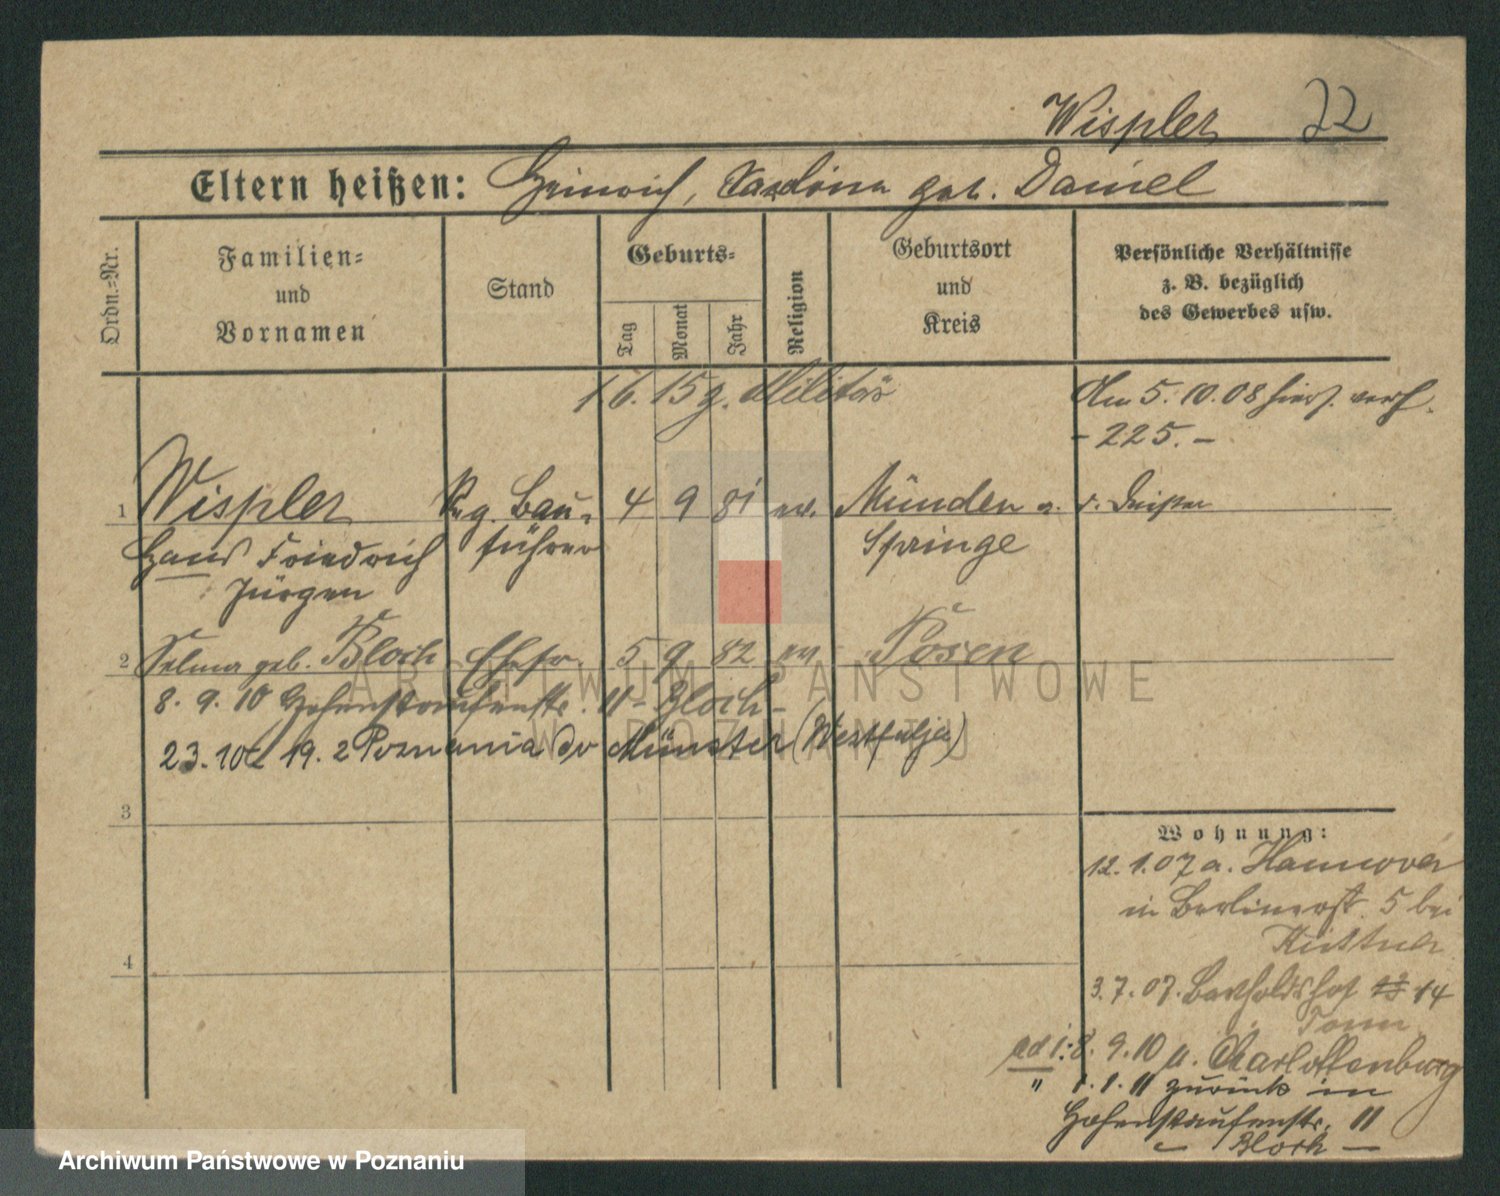 Wispler 22
Eltern heißen: Heinrich, Karoline geb. Daniel
Ordn.-Nr.
Familien-
und
Vornamen
Stand
Geburts-
Tag
Monat
Jahr
Religion
Geburtsort
und
Kreis
Persönliche Verhältnisse
z. B. bezüglich
des Gewerbes usw.
1.6.15 z. Militär
Am 5. 10. 08 hiers. verh.
- 225. -
1 Wispler Rg. Bau- 4 9 81 ev. Münden a. d. Deister
Hans Friedrich führer Springe
Jürgen
2 Selma geb. Bloch Ehefr. 5 9 82 ev. Posen
8. 9. 10 Hohenstaufenstr. 11 - Bloch -
23. 10 19. 2 Poznania do Münster (Westfalja)
3
4
Wohnung:
12. 1. 07 a. Hannover
in Berlinerst. 5 bei
Küttner
3. 7. 07. Bartholdshof 14
ad 1: 8. 9. 10 n. Charlottenburg
" 1. 1. 11 zurück in
Hohenstaufenstr. 11
- Bloch -
ARCHIWUM PAŃSTWOWE
W POZNANIU
Archiwum Państwowe w Poznaniu